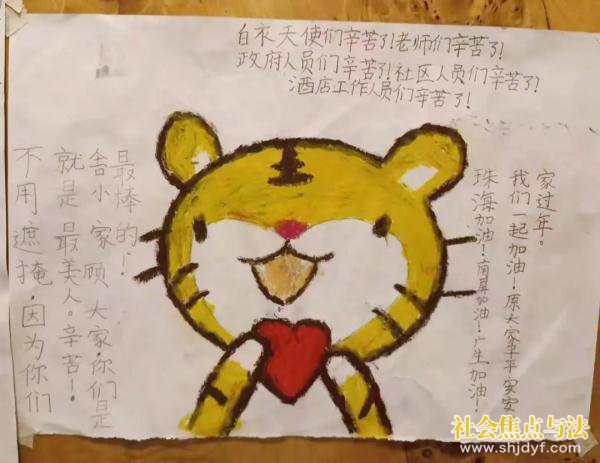 白衣天使们辛苦了!老师们辛苦了!
政府人员们辛苦了!社区人员们辛苦了!
酒店工作人员们辛苦了!
不用遮掩,因为你们
就是最美人。辛苦!
舍小家顾大家,你们是
最棒的!
珠海加油!南屏加油!广生加油!
我们一起加油!原大家平平安安
家过年。
社会焦点与法
www.shjdyf.com